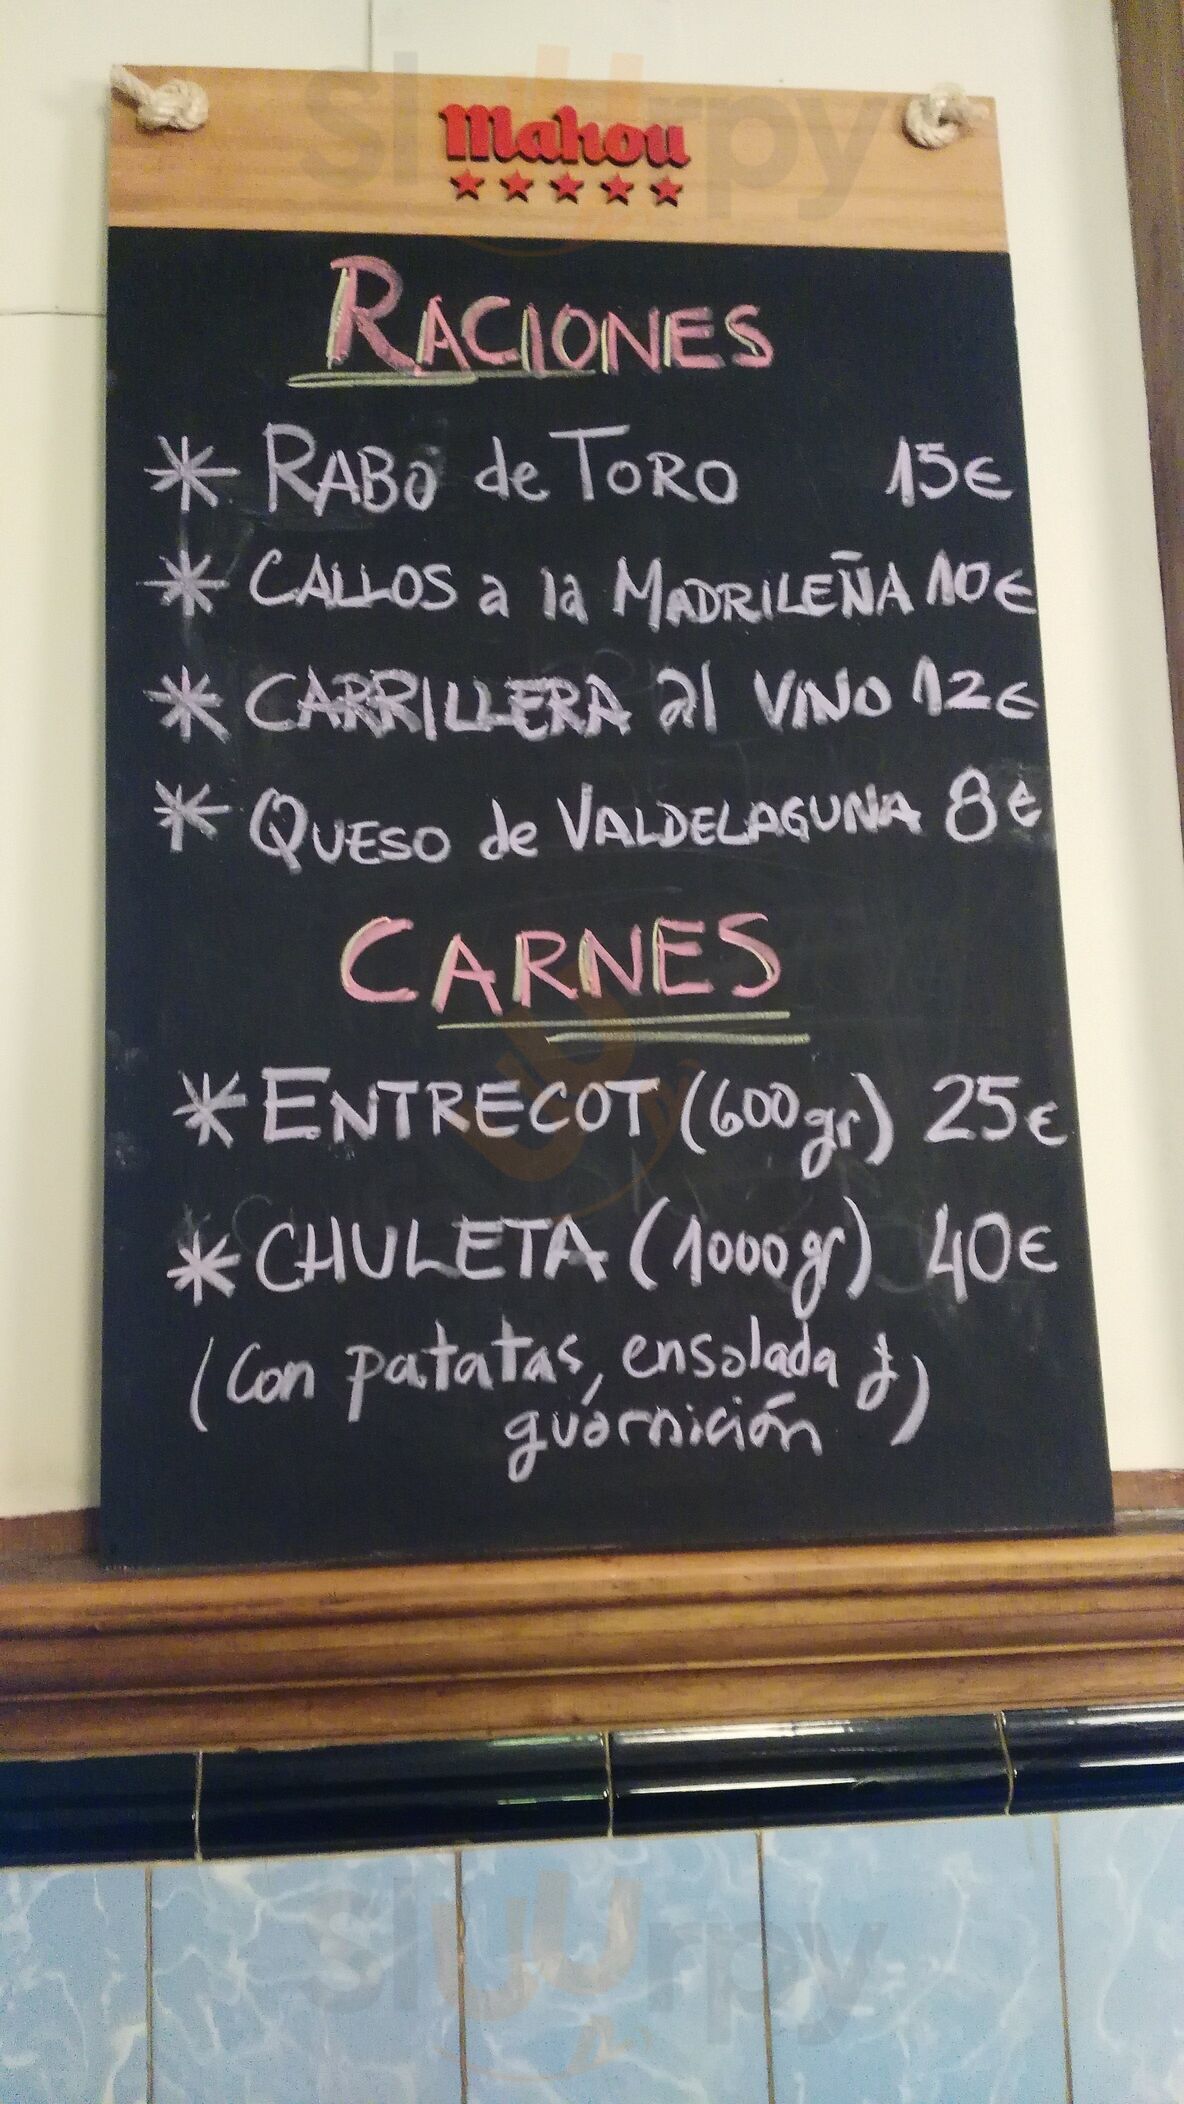 Mahou
RACIONES
* RABO de TORO 15€
* CALLOS a la MADRILEÑA 10€
* CARRILLERA al VINO 12€
* QUESO de VALDELAGUNA 8€
CARNES
* ENTRECOT (600 gr) 25€
* CHULETA (1000 gr) 40€
(Con patatas, ensalada y)
guarnición
sluurpy
sluurpy